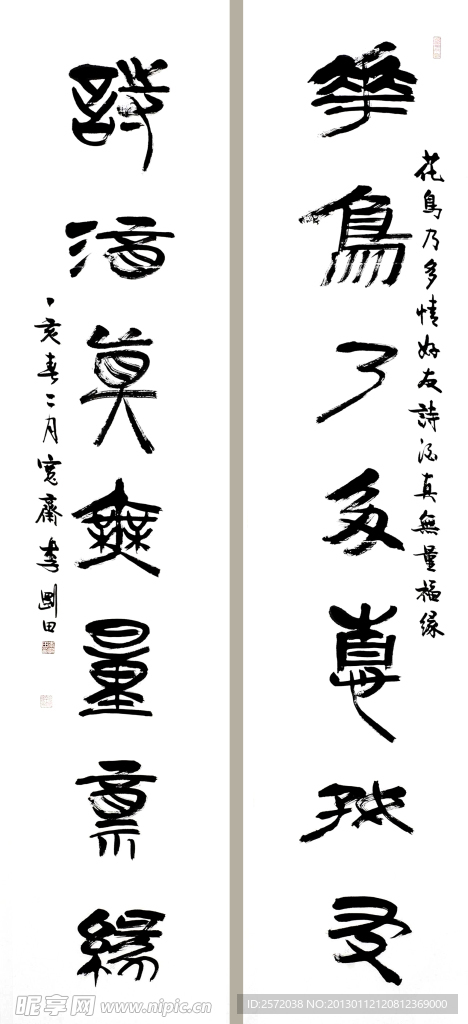 花鳥乃多情好友詩酒真無量福緣
華鳥乃多情好友
詩酒真無量福緣
丁亥春二月寬齋李剛田
昵享网 www.nipic.cn
ID:2572038 NO:20130112120812369000